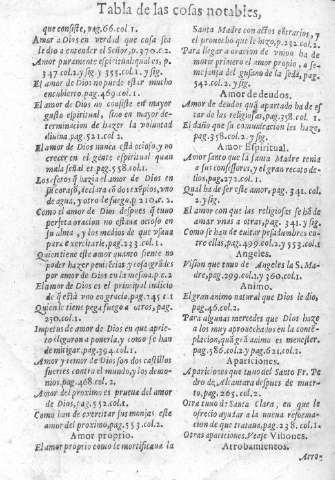 Tabla de las cosas notables,
que consiste, pag. 66. col 1.
Amor a Dios en verdad que casa sea
le dio a entender el Señor, p. 370. c. 2.
Amor puramente espiritual qual es, p.
347. col 2. y sig y 355. col. 1. y sig.
El amor de Dios no puede estar mucho
encubierto. pag. 469. col 1.
El amor de Dios no consiste en mayor
gusto espiritual, sino en mayor de-
terminacion de hazer la voluntad
divina, pag. 521. col 2.
El amor de Dios nunca està ocioso, y no
crecer en el gente espiritual quan
mala señal es. pag. 558. col 1.
Los efetos q haze el amor de Dios en
su coraçõ, declara cõ dos exẽplos, vno
de agua, y otro de fuego. p. 210. c. 2.
Como el amor de Dios despues q tuuo
perfeta oracion no estaua ocioso en
su alma, y los medios de que vsaua
para exercitarle, pag. 233. col. 1.
Quien tiene este amor quanto siente no
poder hazer penitencias y cosas grãdes
por amor de Dios en la misma. p. c. 2
El amor de Dios es el principal indicio
de q està vno en gracia, pag. 245. c 1
Quien le tiene pega fuego a otros, pag.
230. col. 1.
Impetus de amor de Dios en que aprie-
to llegaron a ponerla, y como se han
de mitigar, pag. 394. col. 1.
Amor y temor de Dios son dos castillos
fuertes contra el mundo, y los demo-
nios, pag. 468. col. 2.
Amor del proximo es prueua del amor
de Dios, pag. 552. col. 1.
Como han de exercitar sus monjas este
amor del proximo, pag. 553. col. 2.
Amor proprio.
El amor proprio como le mortificaua la
Santa Madre con actos contrarios, y
el prouecho que le hizo, p. 232. col. 2.
Para llegar a oracion de vnion ha de
morir primero el amor proprio, a se-
mejança del gusano de la seda, pag.
542. col. 2. y sig.
Amor de deudos.
Amor de deudos quã apartado ha de es-
tar de las religiosas, pag. 358. col. 1.
El daño que su comunicacion les haze,
pag. 358. col. 2. y sig.
Amor Espiritual.
Amor santo que la santa Madre tenia
a sus confessores, y el gran recato de-
llos, pag. 272. col 1.
Qual ha de ser este amor, pag. 341. col.
2. y sig.
El amor con que las religiosas se hã de
amar vnas a otras, pag. 341. y sig.
Como se han de euitar pesadumbres en-
tre ellas, pag. 499. col. 2. y 553. col 1.
Angeles.
Vision que tuuo de Angeles la S. Ma-
dre, pag. 299. col. 1. y 360. col 1.
Animo.
El gran animo natural que le dio Dios,
pag. 46. col. 2.
Para algunas mercedes que Dios haze
a los muy aprouechados en la contẽ-
placion, quã grã animo es menester.
pag. 586. col 2. y pag. 621. col. 2.
Apariciones.
Apariciones que tuuo del Santo Fr. Pe
dro de Alcantara despues de muer-
to, pag. 265. col. 2.
Otra tuuo de Santa Clara, en que le
ofrecio ayudar a la nueua reforma-
cion de que trataua, pag. 238. col. 1.
Otras apariciones. Vease Visiones.
Arrobamientos.
Arro-